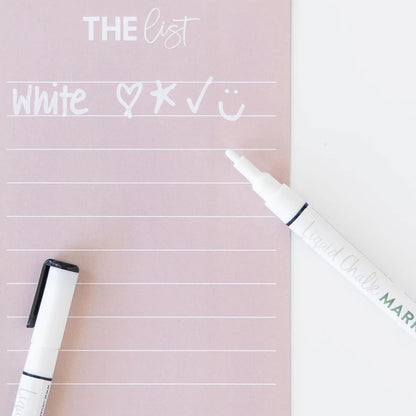 THE list
white
Liquid Chalk MARK